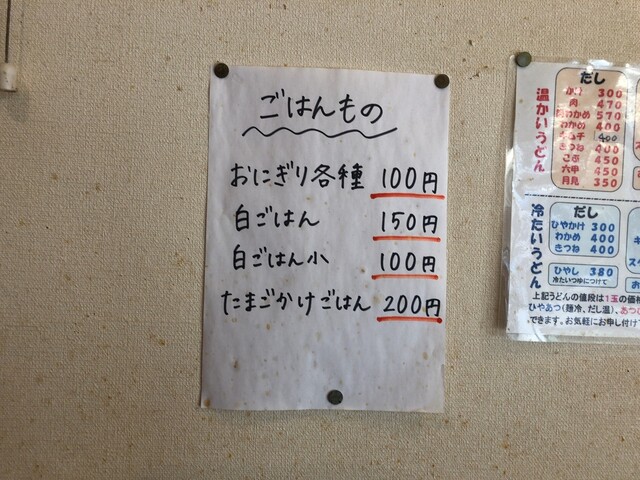 ごはんもの
おにぎり各種 100円
白ごはん 150円
白ごはん小 100円
たまごかけごはん 200円
温かいうどん
だし
かけ 300
肉 470
肉わかめ 570
わかめ 400
キムチ 400
きつね 400
こぶ 450
六甲 450
月見 350
冷たいうどん
だし
ひやかけ 300
わかめ 400
きつね 400
ひやし 380
冷たいつゆにつけて
上記うどんの値段は1玉の価
ひやあつ(麺冷、だし温)、あつ
できます。お気軽にお申し付け